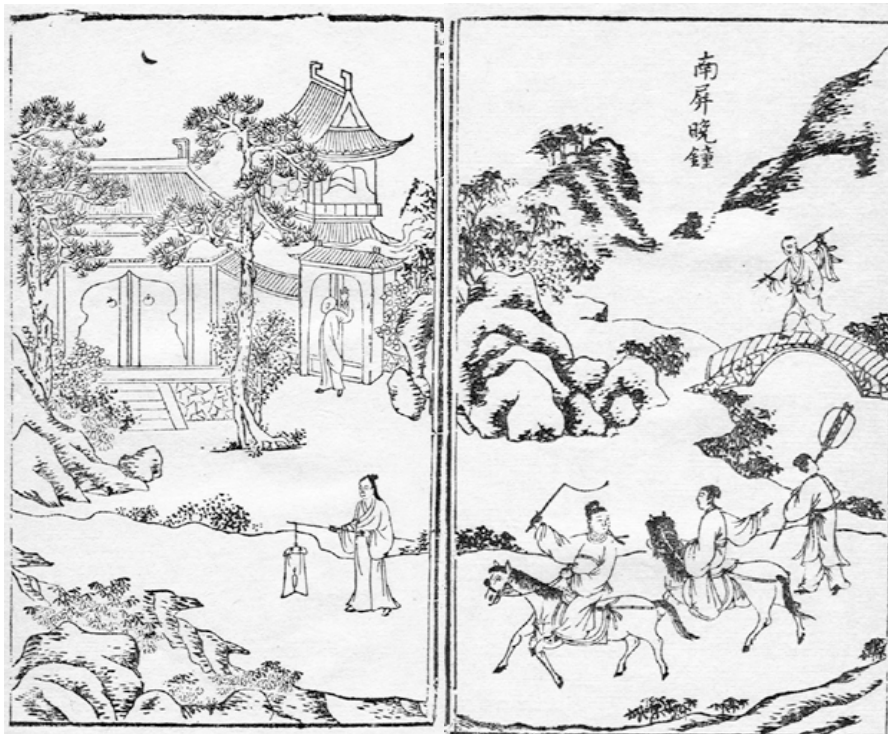 南屏晚鐘